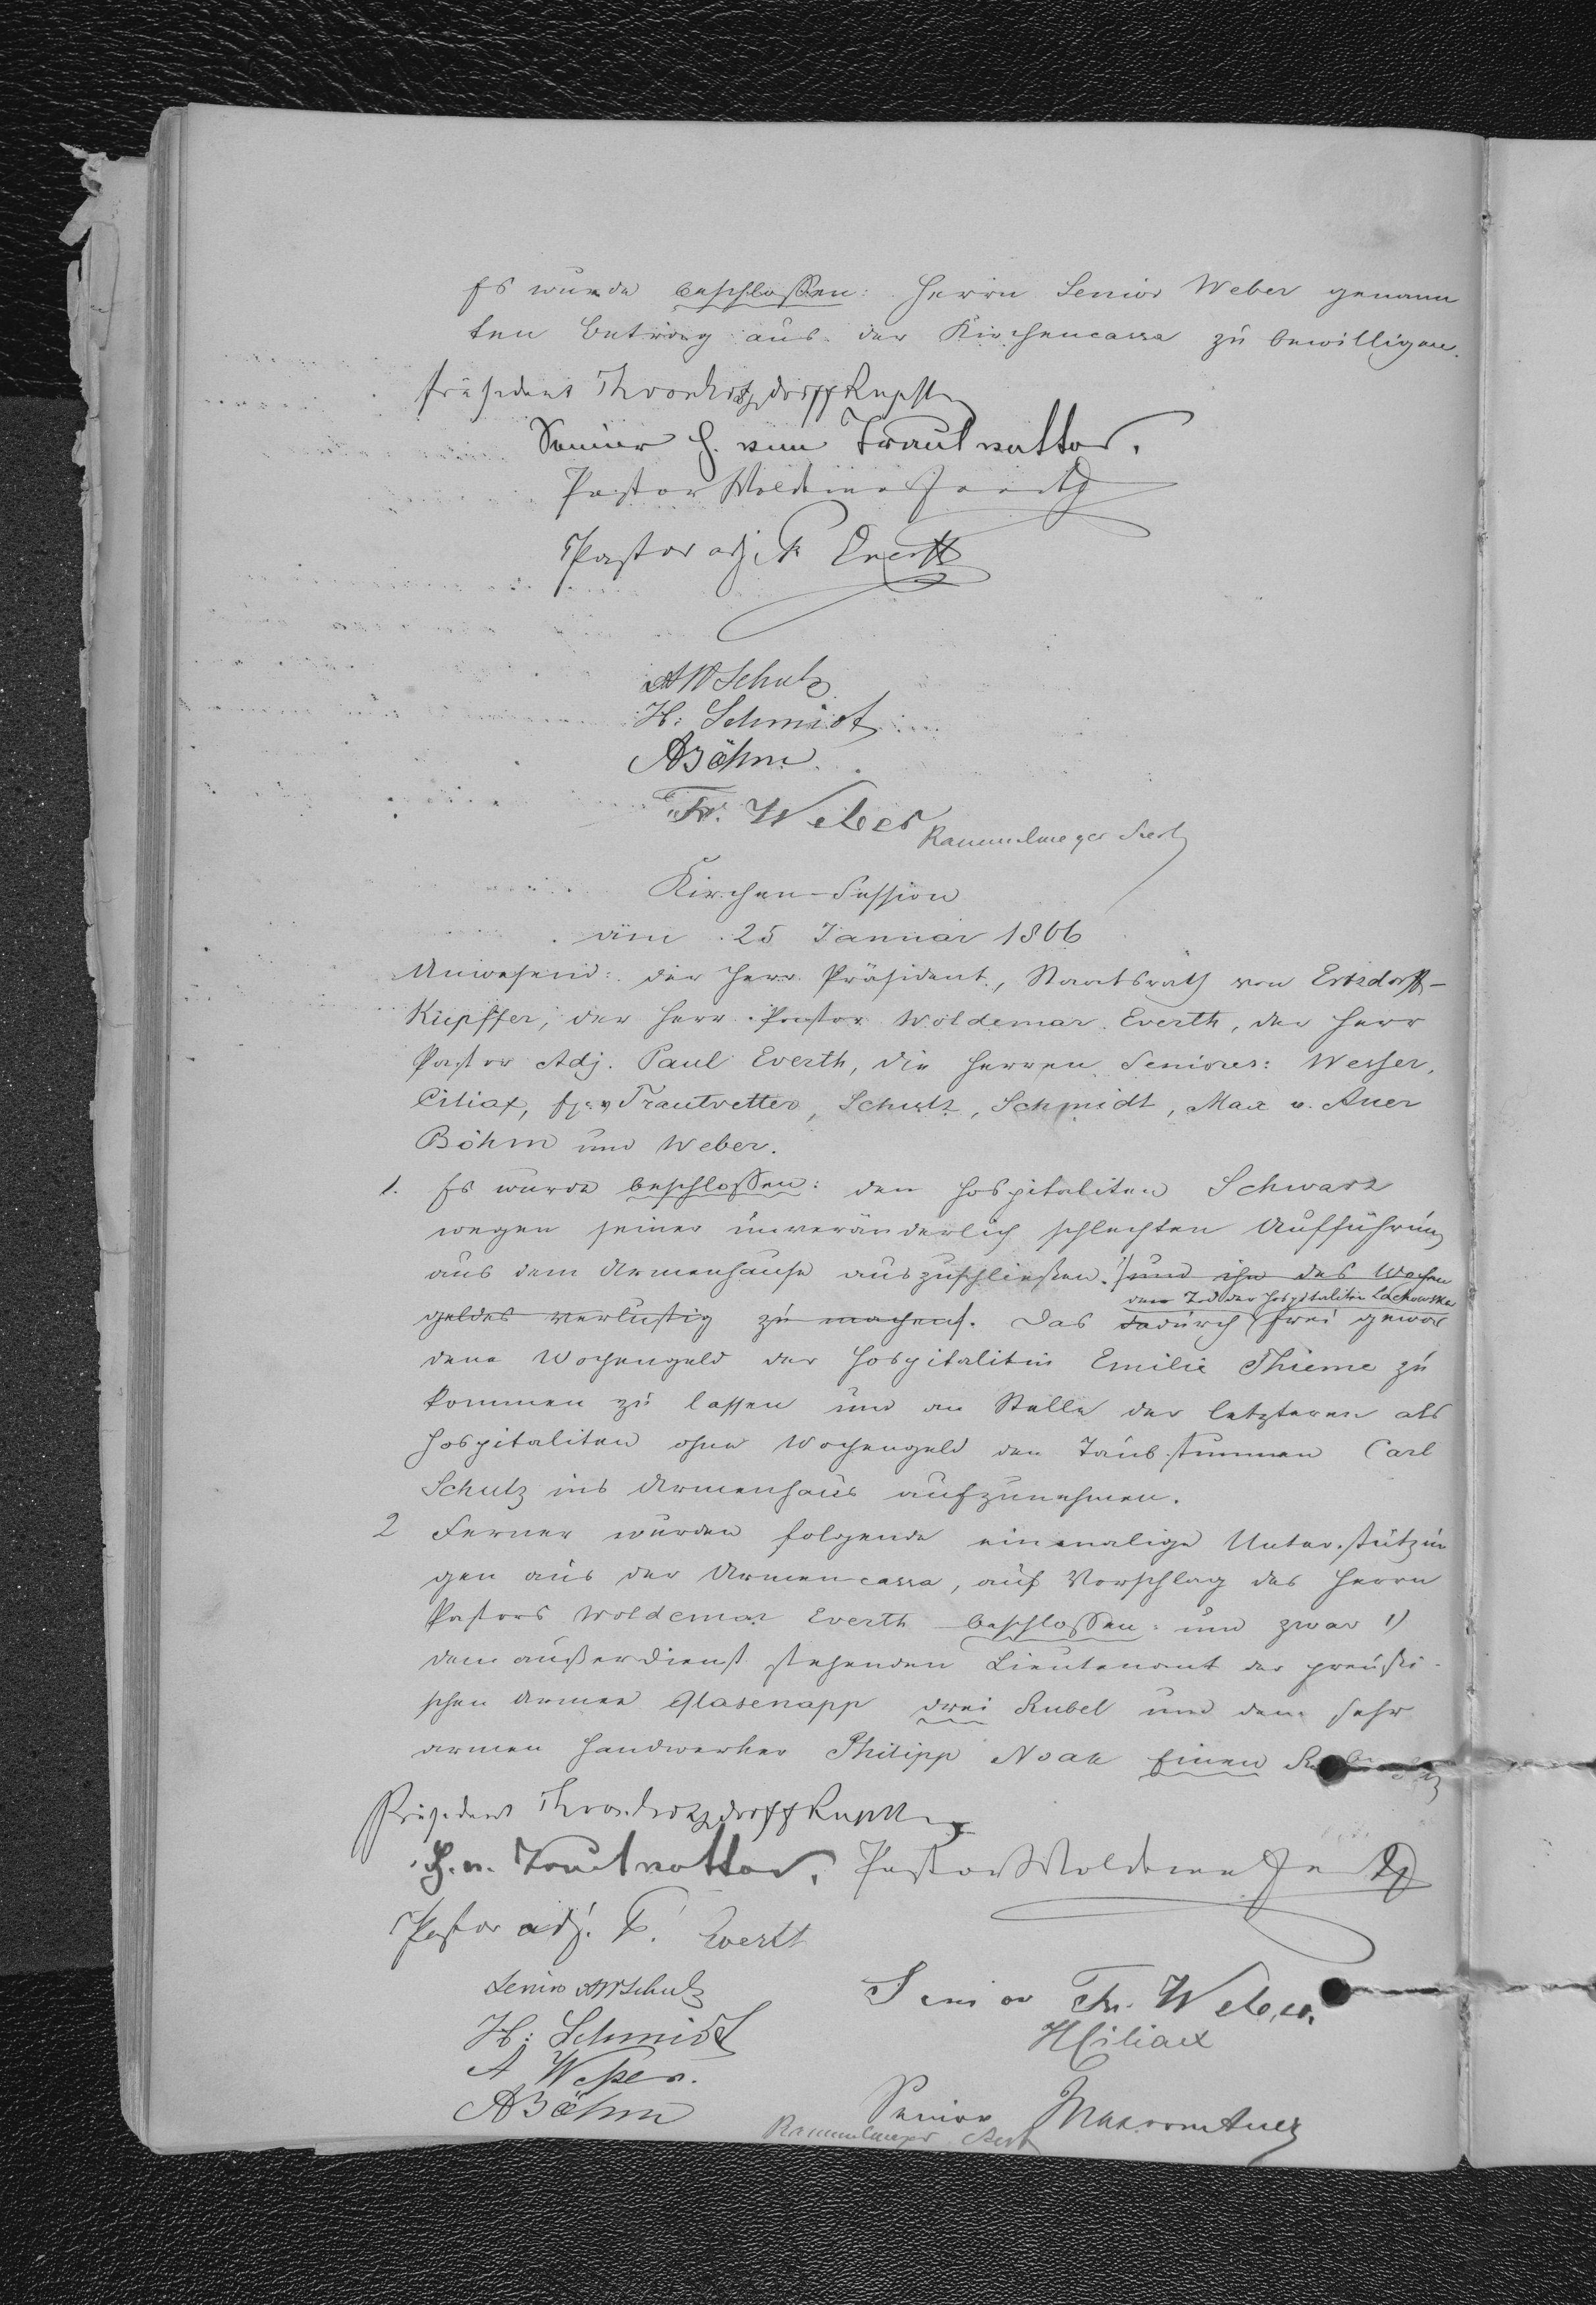 Es wurde beschlossen: Herrn Senior Weber genann
ten Betrag aus der Kirchencassa zu bewilligen.
Präsident Th von Ertzdorff Kupffer
Senior H. von Trautvetter.
Pastor Woldemar Everth
Pastor adj. P. Everth
AW Schulz
H: Schmidt
ABöhm.
Fr. Weber
Rammelmeyer Secr
Kirchen-Session
am 25 Januar 1866
Anwesend: der Herr Präsident, Staatsrath von Ertzdorff-
Kupffer, der Herr Pastor Woldemar Everth, der Herr
Pastor Adj. Paul Everth, die Herren Seniores: Wesser,
Ciliax, H. v Trautvetter, Schultz, Schmidt, Max v. Auer
Böhm und Weber.
1. Es wurde beschlossen: den Hospitaliten Schwarz
wegen seiner unveränderlich schlechten Aufführung
aus dem Armenhause auszuschließen. und ihn des Wochen
geldes verlustig zu machen. Das dadurch frei gewor
den Tod der Hospitalitin Lachowska
dene Wochengeld der Hospitalitin Emilie Thieme zu
kommen zu lassen und an Stelle der letzteren als
Hospitaliten ohne Wochengeld den Taubstummen Carl
Schulz ins Armenhaus aufzunehmen.
2 Ferner wurden folgende einmalige Unterstützun
gen aus der Armencassa, auf Vorschlag des Herrn
Pastors Woldemar Everth beschlossen: und zwar 1)
dem außer Dienst stehenden Lieutenant der preußi-
schen Armee Glasenapp drei Rubel und dem sehr
armen Handwerker Philipp Noak Einen
Präsident Th von Ertzdorff Kupffer
H. v. Trautvetter. Pastor Woldemar Everth
Pastor adj. P. Everth
Senior AW Schulz
Senior Fr. Weber.
H: Schmidt
HCiliax
A Wesser.
ABöhm
Senior Max von Auer
Rammelmeyer Secr